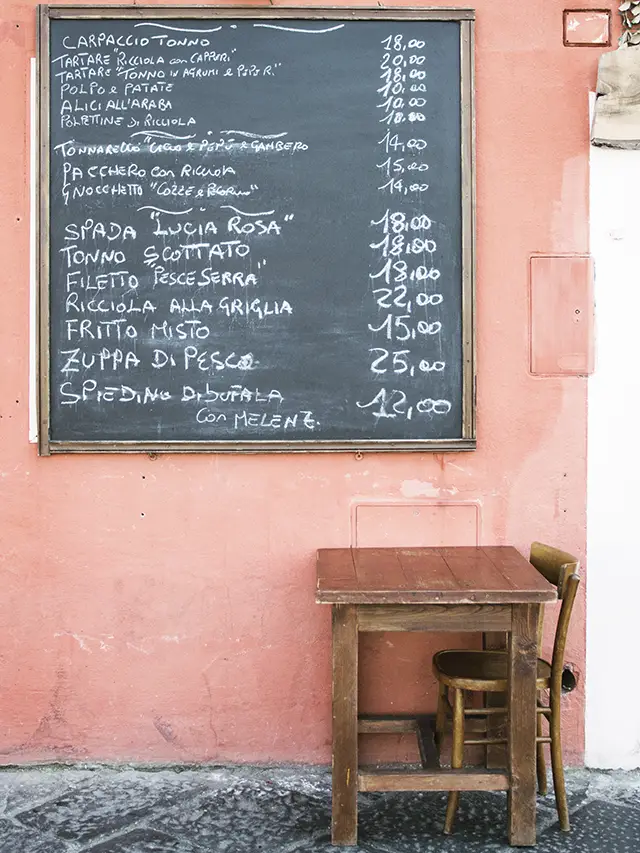 CARPACCIO TONNO 18,00
TARTARE "RICCIOLA con CAPPERI" 20,00
TARTARE "TONNO in AGRUMI e PEPE R." 18,00
POLPO e PATATE 10,00
ALICI ALL'ARABA 10,00
POLPETTINE DI RICCIOLA 10,00
TONNARELLO "CACIO e PEPE" e GAMBERO 14,00
PACCHERO con RICCIOLA 15,00
GNOCCHETTO "COZZE e PECORINO" 14,00
SPADA "LUCIA ROSA" 18,00
TONNO SCOTTATO 18,00
FILETTO "PESCE SERRA" 18,00
RICCIOLA ALLA GRIGLIA 22,00
FRITTO MISTO 15,00
ZUPPA DI PESCE 25,00
SPIEDINO DI BUFALA 12,00
con MELENZ.